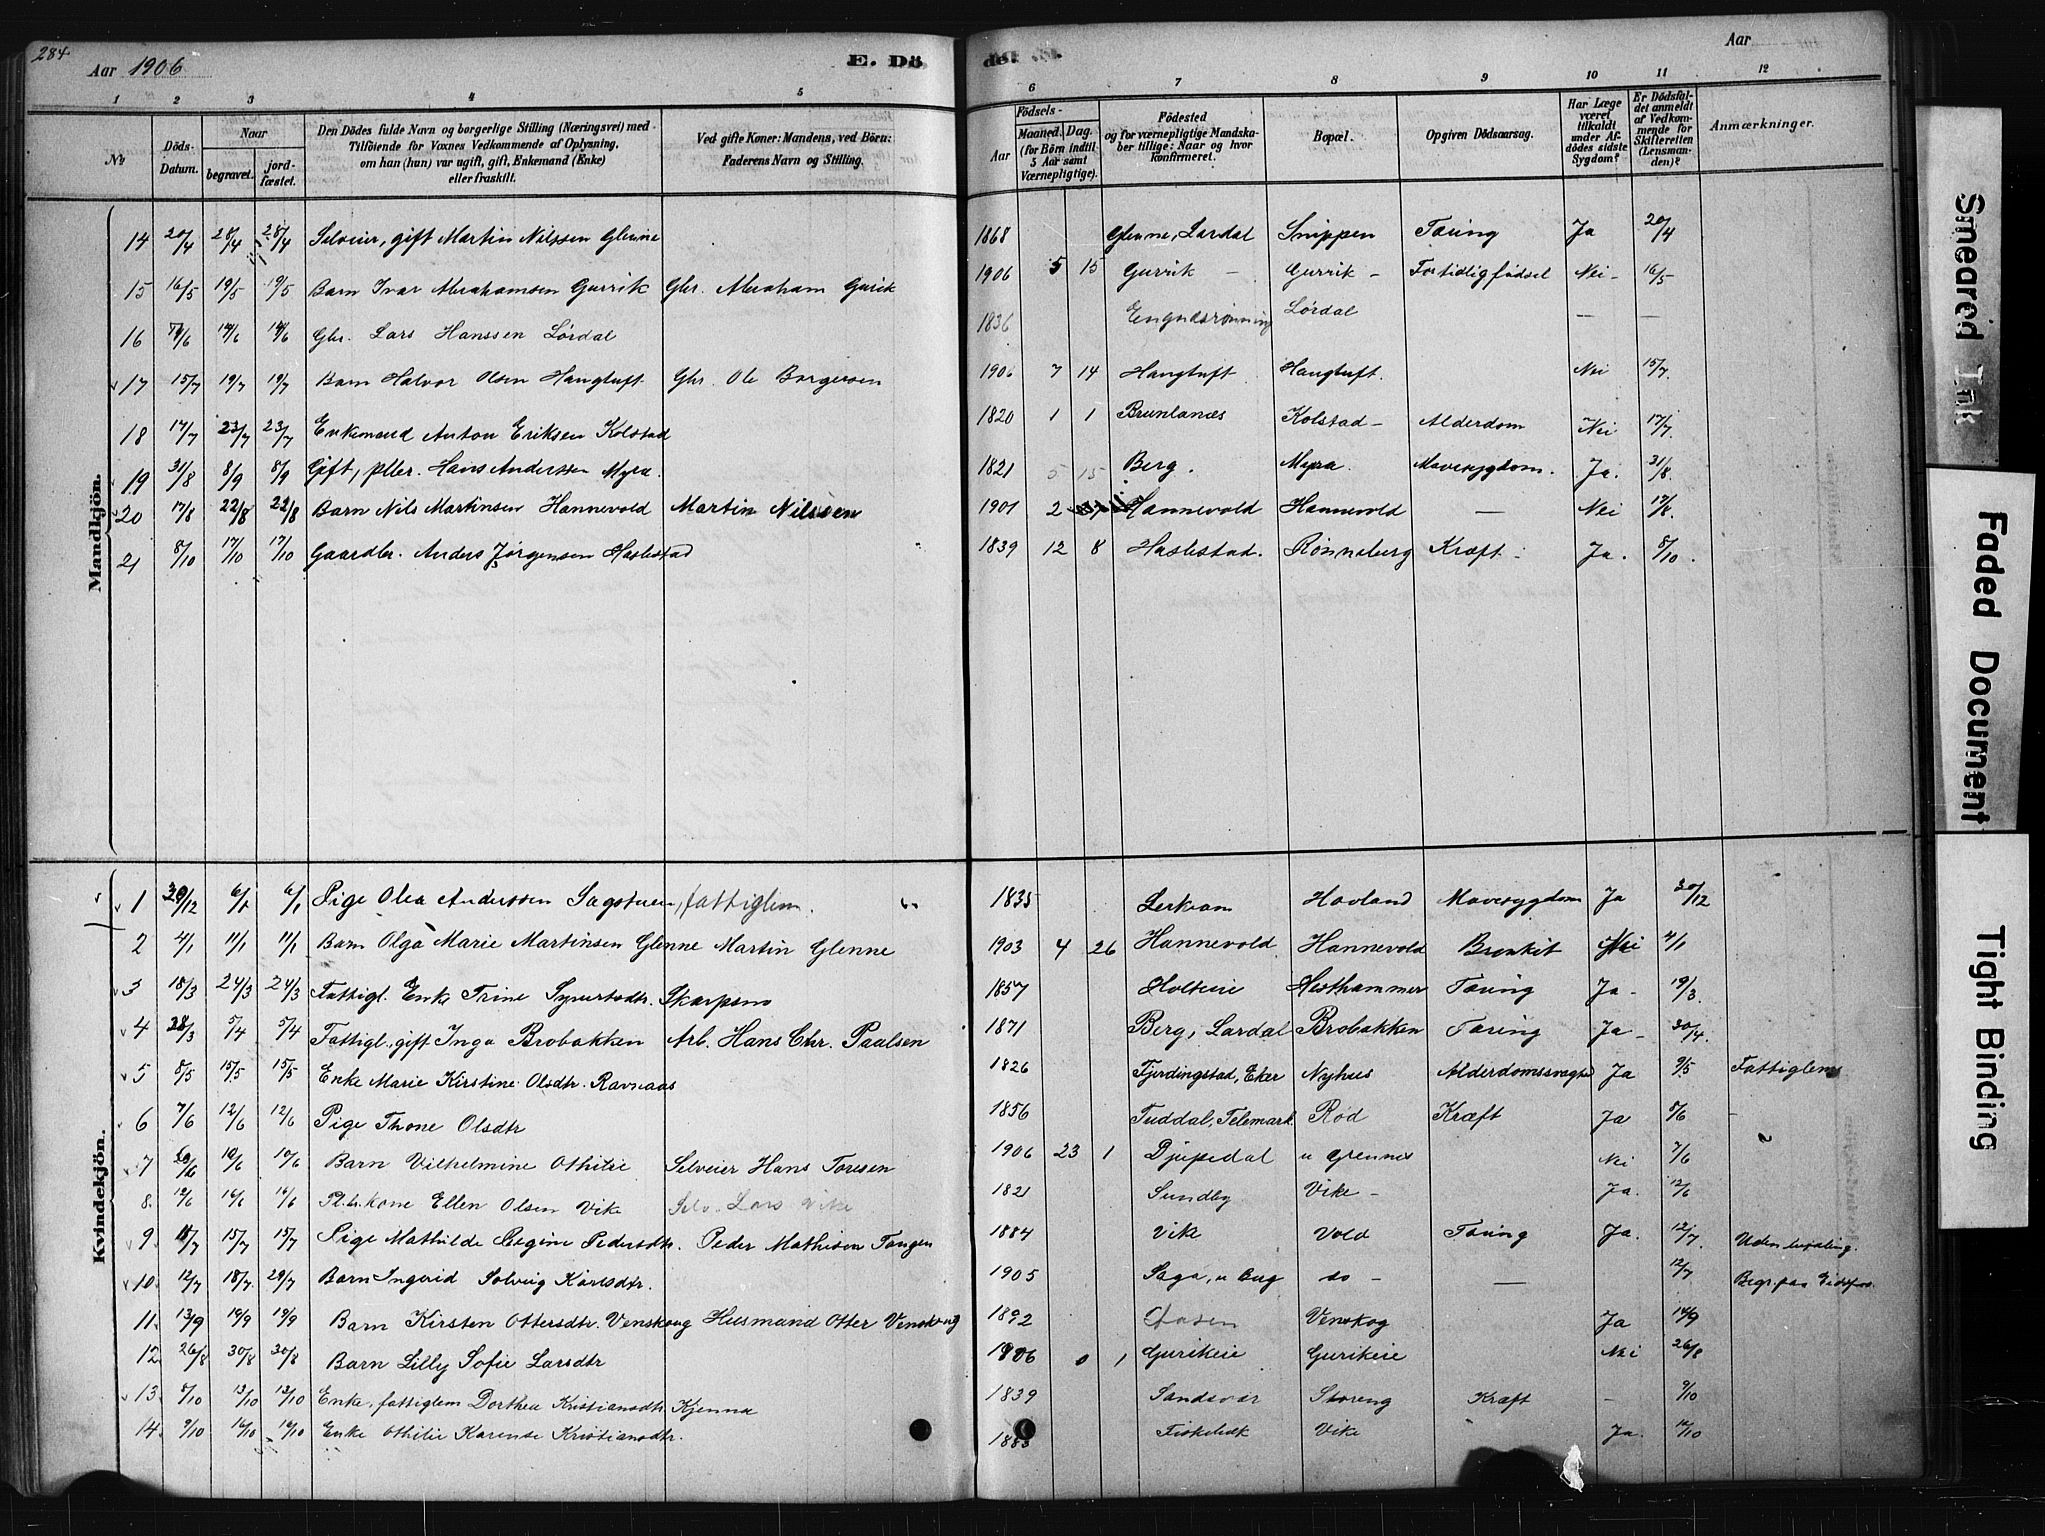 284
Aar 1906
E. Dö
de.
Aar
1 2 3 4 5 6 7 8 9 10 11 12
No
Döds-Datum.
Naar
begravet.
jord-fæstet.
Den Dödes fulde Navn og borgerlige Stilling (Næringsvei) med
Tilföiende for Voxnes Vedkommende af Oplysning,
om han (hun) var ugift, gift, Enkemand (Enke)
eller fraskilt.
Ved gifte Koner: Mandens, ved Börn:
Faderens Navn og Stilling.
Födsels-
Aar
Maaned. Dag.
(for Börn indtil
5 Aar samt
Værnepligtige).
Födested
og for værnepligtige Mandska-
ber tillige: Naar og hvor
konfirmeret.
Bopæl.
Opgiven Dödsaarsag.
Har Læge
været
tilkaldt
under Af-
dödes sidste
Sygdom?
Er Dödsfal-
det anmeldt
af Vedkom-
mende for
Skifteretten
(Lensman-
den)?
Anmærkninger.
Mandkjön.
14 20/4 28/4 28/4 Selveier, gift Martin Nilssen Glenne 1868 Glenne, Lardal Snippen Tæring Ja 20/4
15 16/5 19/5 19/5 Barn Ivar Abrahamsen Gurrik Gbr. Abraham Gurik 1906 5 15 Gurrik — Gurrik — For tidlig födsel Nei — 16/5
16 14/6 14/6 Gbr. Lars Hanssen Lørdal 1836 Lørdal — —
17 15/7 19/7 19/7 Barn Halvor Olsen Hangtuft Gbr. Ole Borgersen 1906 7 14 Hangtuft Hangtuft. Nei 15/7.
18 17/7 23/7 23/7 Enkemand Anton Eriksen Kolstad 1820 1 1 Brunlanæs Kolstad — Alderdom Nei 17/7.
19 31/8 8/9 8/9 Gift, Hans Anderssen Myra. 1821 5 15 Berg. Myra. Mavesygdom. Ja. 31/8.
20 17/8 22/8 22/8 Barn Nils Martinsen Hannevold Martin Nilssen 1901 2 Hannevold Hannevold — Nei 17/8.
21 8/10 17/10 17/10 Gaardbr. Anders Jørgensen Haslestad 1839 12 8 Haslestad. Rønneberg Kræft Ja. 8/10.
Kvindekjön.
1 30/12 6/1 6/1 Pige Olea Anderssen Sagstuen, fattiglem. 1835 Lerkam Hovland Mavesygdom Ja 30/12
2 4/1 11/1 11/1 Barn Olga Marie Martinsen Glenne Martin Glenne 1903 4 26 Hannevold Hannevold Bronkit Nei 4/1
3 18/3 24/3 24/3 Fattigl. Enk Trine Syvertsdtr. Skarpsno 1857 Holteie Hesthammer Tæring Ja — 19/3.
4 28/3 5/4 5/4 Fattigl. gift Inga Brobakken Arb. Hans Chr. Paalsen 1871 Berg, Lardal Brobakken Tæring Ja — 30/4.
5 8/5 15/5 15/5 Enke Marie Kirstine Olsdtr. Ravnaas 1826 Fjerdingstad, Eker Nyhus Alderdomssvaghed Ja 9/5 Fattiglem
6 7/6 12/6 12/6 Pige Thone Olsdtr 1856 Tuddal, Telemark Rød Kræft Ja 8/6
7 10/6 10/6 Barn Vilhelmine Othilie Selveier Hans Toresen 1906 23 1 Djupedal u Grennes Nei 7/6
8. 12/6 16/6 16/6 kone Ellen Olsen Vike Selv. Lars Vike 1821 Sundby Vike — Ja. 12/6
9. 11/7 15/7 15/7 Pige Mathilde Regine Pedersdtr. Peder Mathisen Tangen 1884 Vike Vold Tæring Ja. 12/7. Uden betaling.
10. 12/7 18/7. 29/7 Barn Ingerid Solveig Karlsdtr. 1905 Saga, u Berg do — — 12/7 Begr. paa Eidsfos.
11. 13/9 19/9 19/9 Barn Kirsten Ottersdtr. Venskoug Husmand Otter Venskoug 1892 Aasen Venskog Ja 14/9
12. 26/8 30/8 30/8 Barn Lilly Sofie Larsdtr 1906 0 1 Gurikeie Gurikeie Nei 26/8
13. 8/10 13/10 13/10 Enke, fattiglem Dorthea Kristiansdtr Kjenna 1839 Sandsvær Storeng Kræft — 9/10
14. 9/10 16/10 16/10 Enke Othilie Karense Kristiansdtr. 1883 Fiskebæk Vike Ja. 12/10
Smeared Ink
Faded Document
Tight Binding